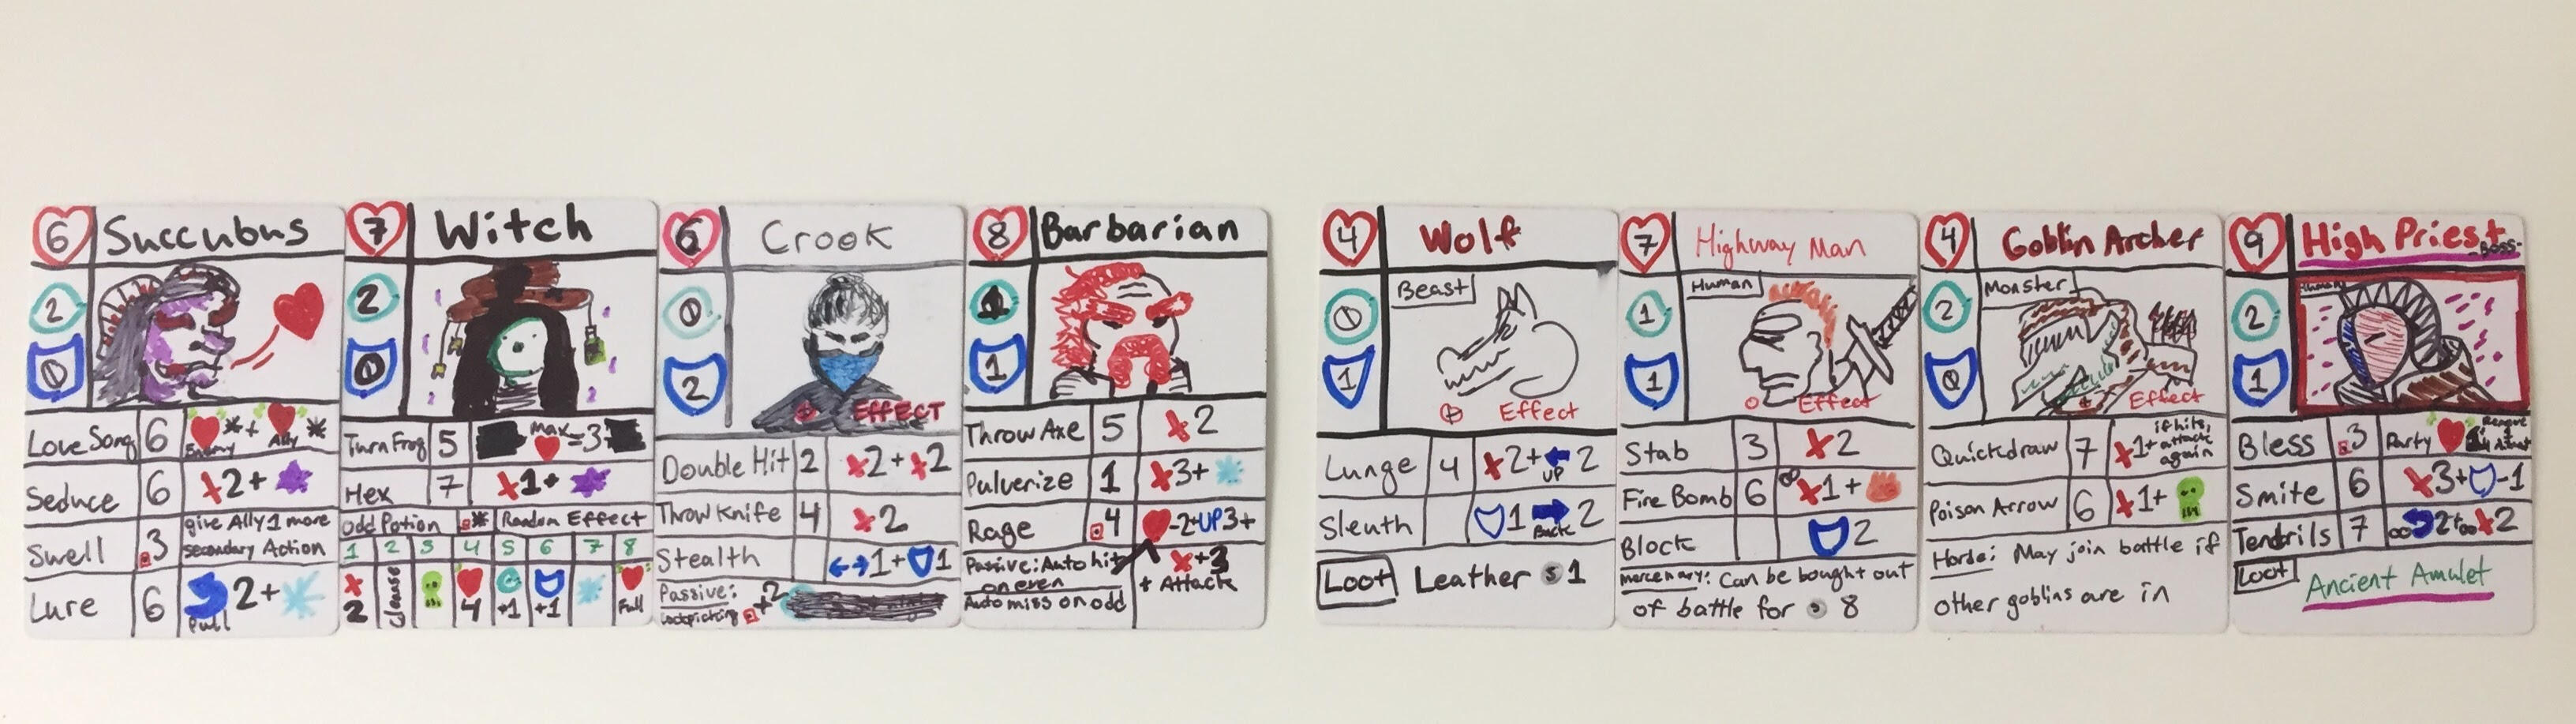 6 Succubus
2
0
Love Song 6 Enemy + Ally
Seduce 6 2+
Swell 3 give Ally 1 more
secondary Action
Lure 6 2+
Pull
7 Witch
2
0
Turn Frog 5 Max =3
Hex 7 1+
Odd Potion Random Effect
1 2 3 4 5 6 7 8
2 Cleanse 4 +1 +1 Full
6 Crook
0
2
EFFECT
Double Hit 2 2+ 2
Throw Knife 4 2
Stealth 1+ 1
Passive:
Lockpicking +2
8 Barbarian
1
1
Throw Axe 5 2
Pulverize 1 3+
Rage 4 -2+UP3+
Passive: Auto hit +3
on even + Attack
Auto miss on odd
4 Wolf
0 Beast
1
Effect
Lunge 4 2+ 2
UP
Sleuth 1 2
Back
Loot Leather S 1
7 Highway Man
1 Human
1
Effect
Stab 3 2
Fire Bomb 6 1+
Block 2
mercenary: Can be bought out
of battle for S 8
4 Goblin Archer
2 Monster
0
Effect
Quickdraw 7 1+ if hits,
attack
again
Poison Arrow 6 1+
Horde: May join battle if
other goblins are in
9 High Priest
-Boss-
2 Human
1
Bless 3 Party
Smite 6 3+ -1
Tendrils 7 2+ 2
Loot Ancient Amulet